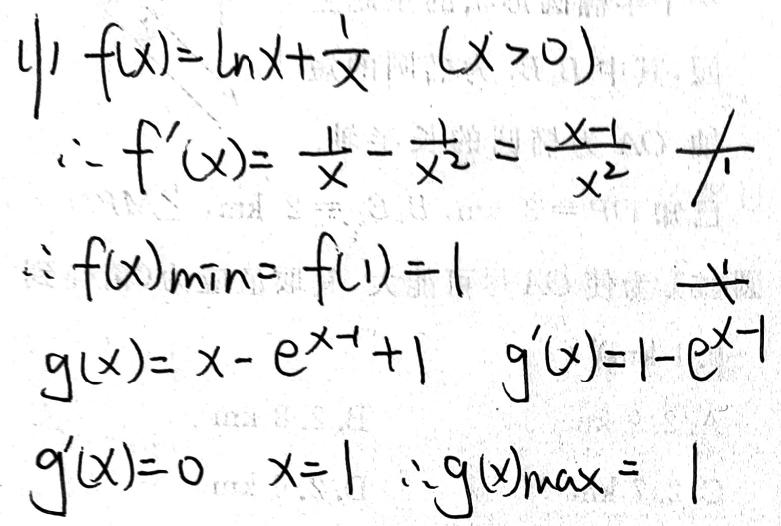 (1) f(x)=lnx+1/x (x>0)
∴ f'(x)=1/x-1/x²=(x-1)/x² 1
∴ f(x)min=f(1)=1 1
g(x)=x-e^(x-1)+1 g'(x)=1-e^(x-1)
g'(x)=0 x=1 ∴g(x)max=1